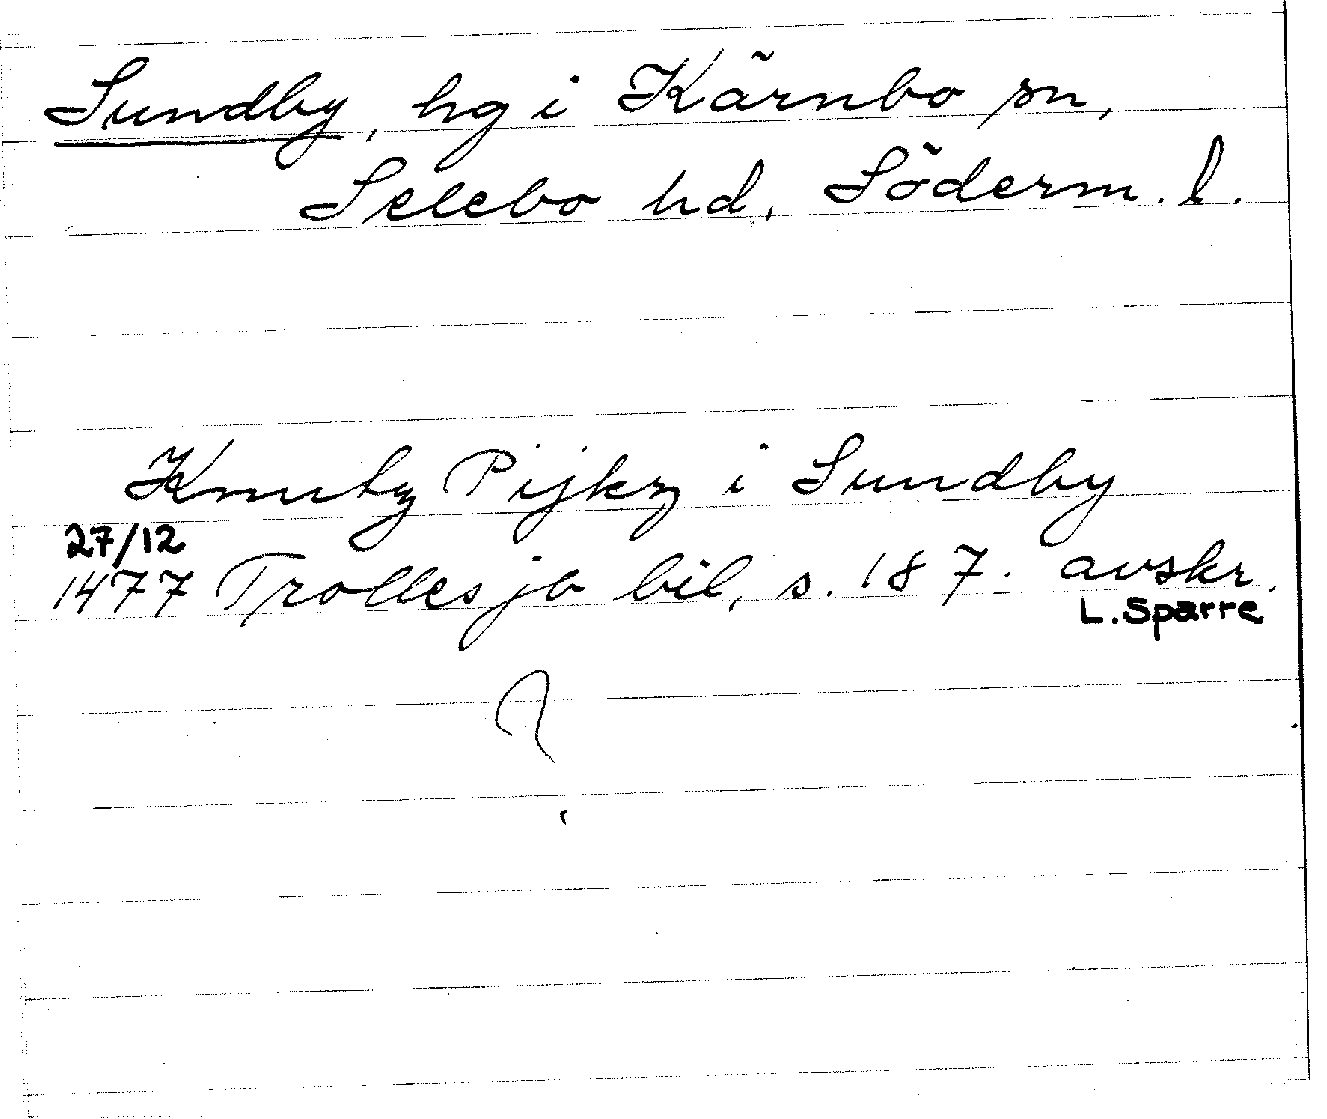 Sundby, hg i Kärnbo sn,
Selebo hd, Söderm. l.
Knutz Pijkz i Sundby
27/12
1477 Trolles jb bil, s. 187. avskr.
L. Sparre
?